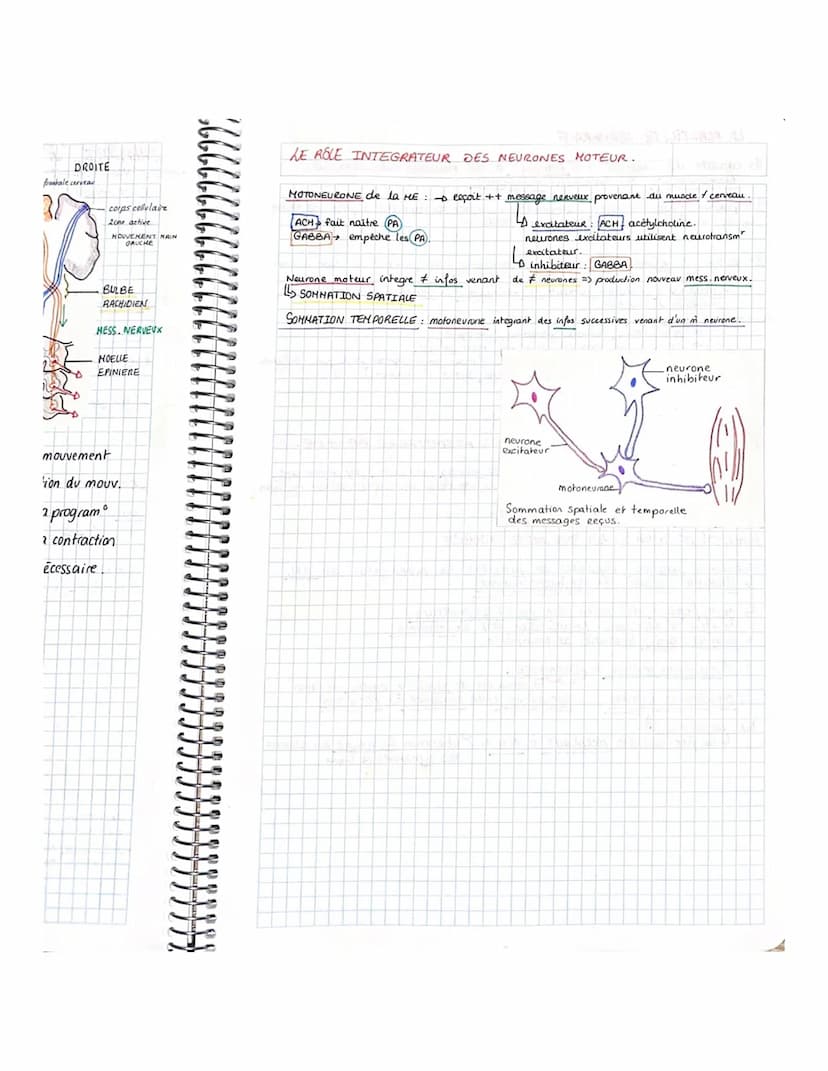 DROITE
frontale cerveau
corps cellulaire
zone active
MOUVEMENT MAIN
GAUCHE
BULBE
RACHIDIEN
MESS. NERVEUX
MOELLE
EPINIERE
mouvement
ion du mouv.
program°
contraction
écessaire.
LE RÔLE INTEGRATEUR DES NEURONES MOTEUR.
MOTONEURONE de la ME : → reçoit ++ message nerveux provenant du muscle / cerveau.
ACH → fait naître PA
↳ excitateur : ACH acétylcholine.
GABBA → empêche les PA.
neurones excitateurs utilisent neurotransmʳ
excitateur.
↳ inhibiteur : GABBA
Neurone moteur intègre ≠ infos venant de ≠ neurones => production nouveau mess. nerveux.
↳ SOMMATION SPATIALE
SOMMATION TEMPORELLE : motoneurone integrant des infos successives venant d'un m̂ neurone.
neurone
inhibiteur
neurone
excitateur
motoneurone
Sommation spatiale et temporelle
des messages reçus.